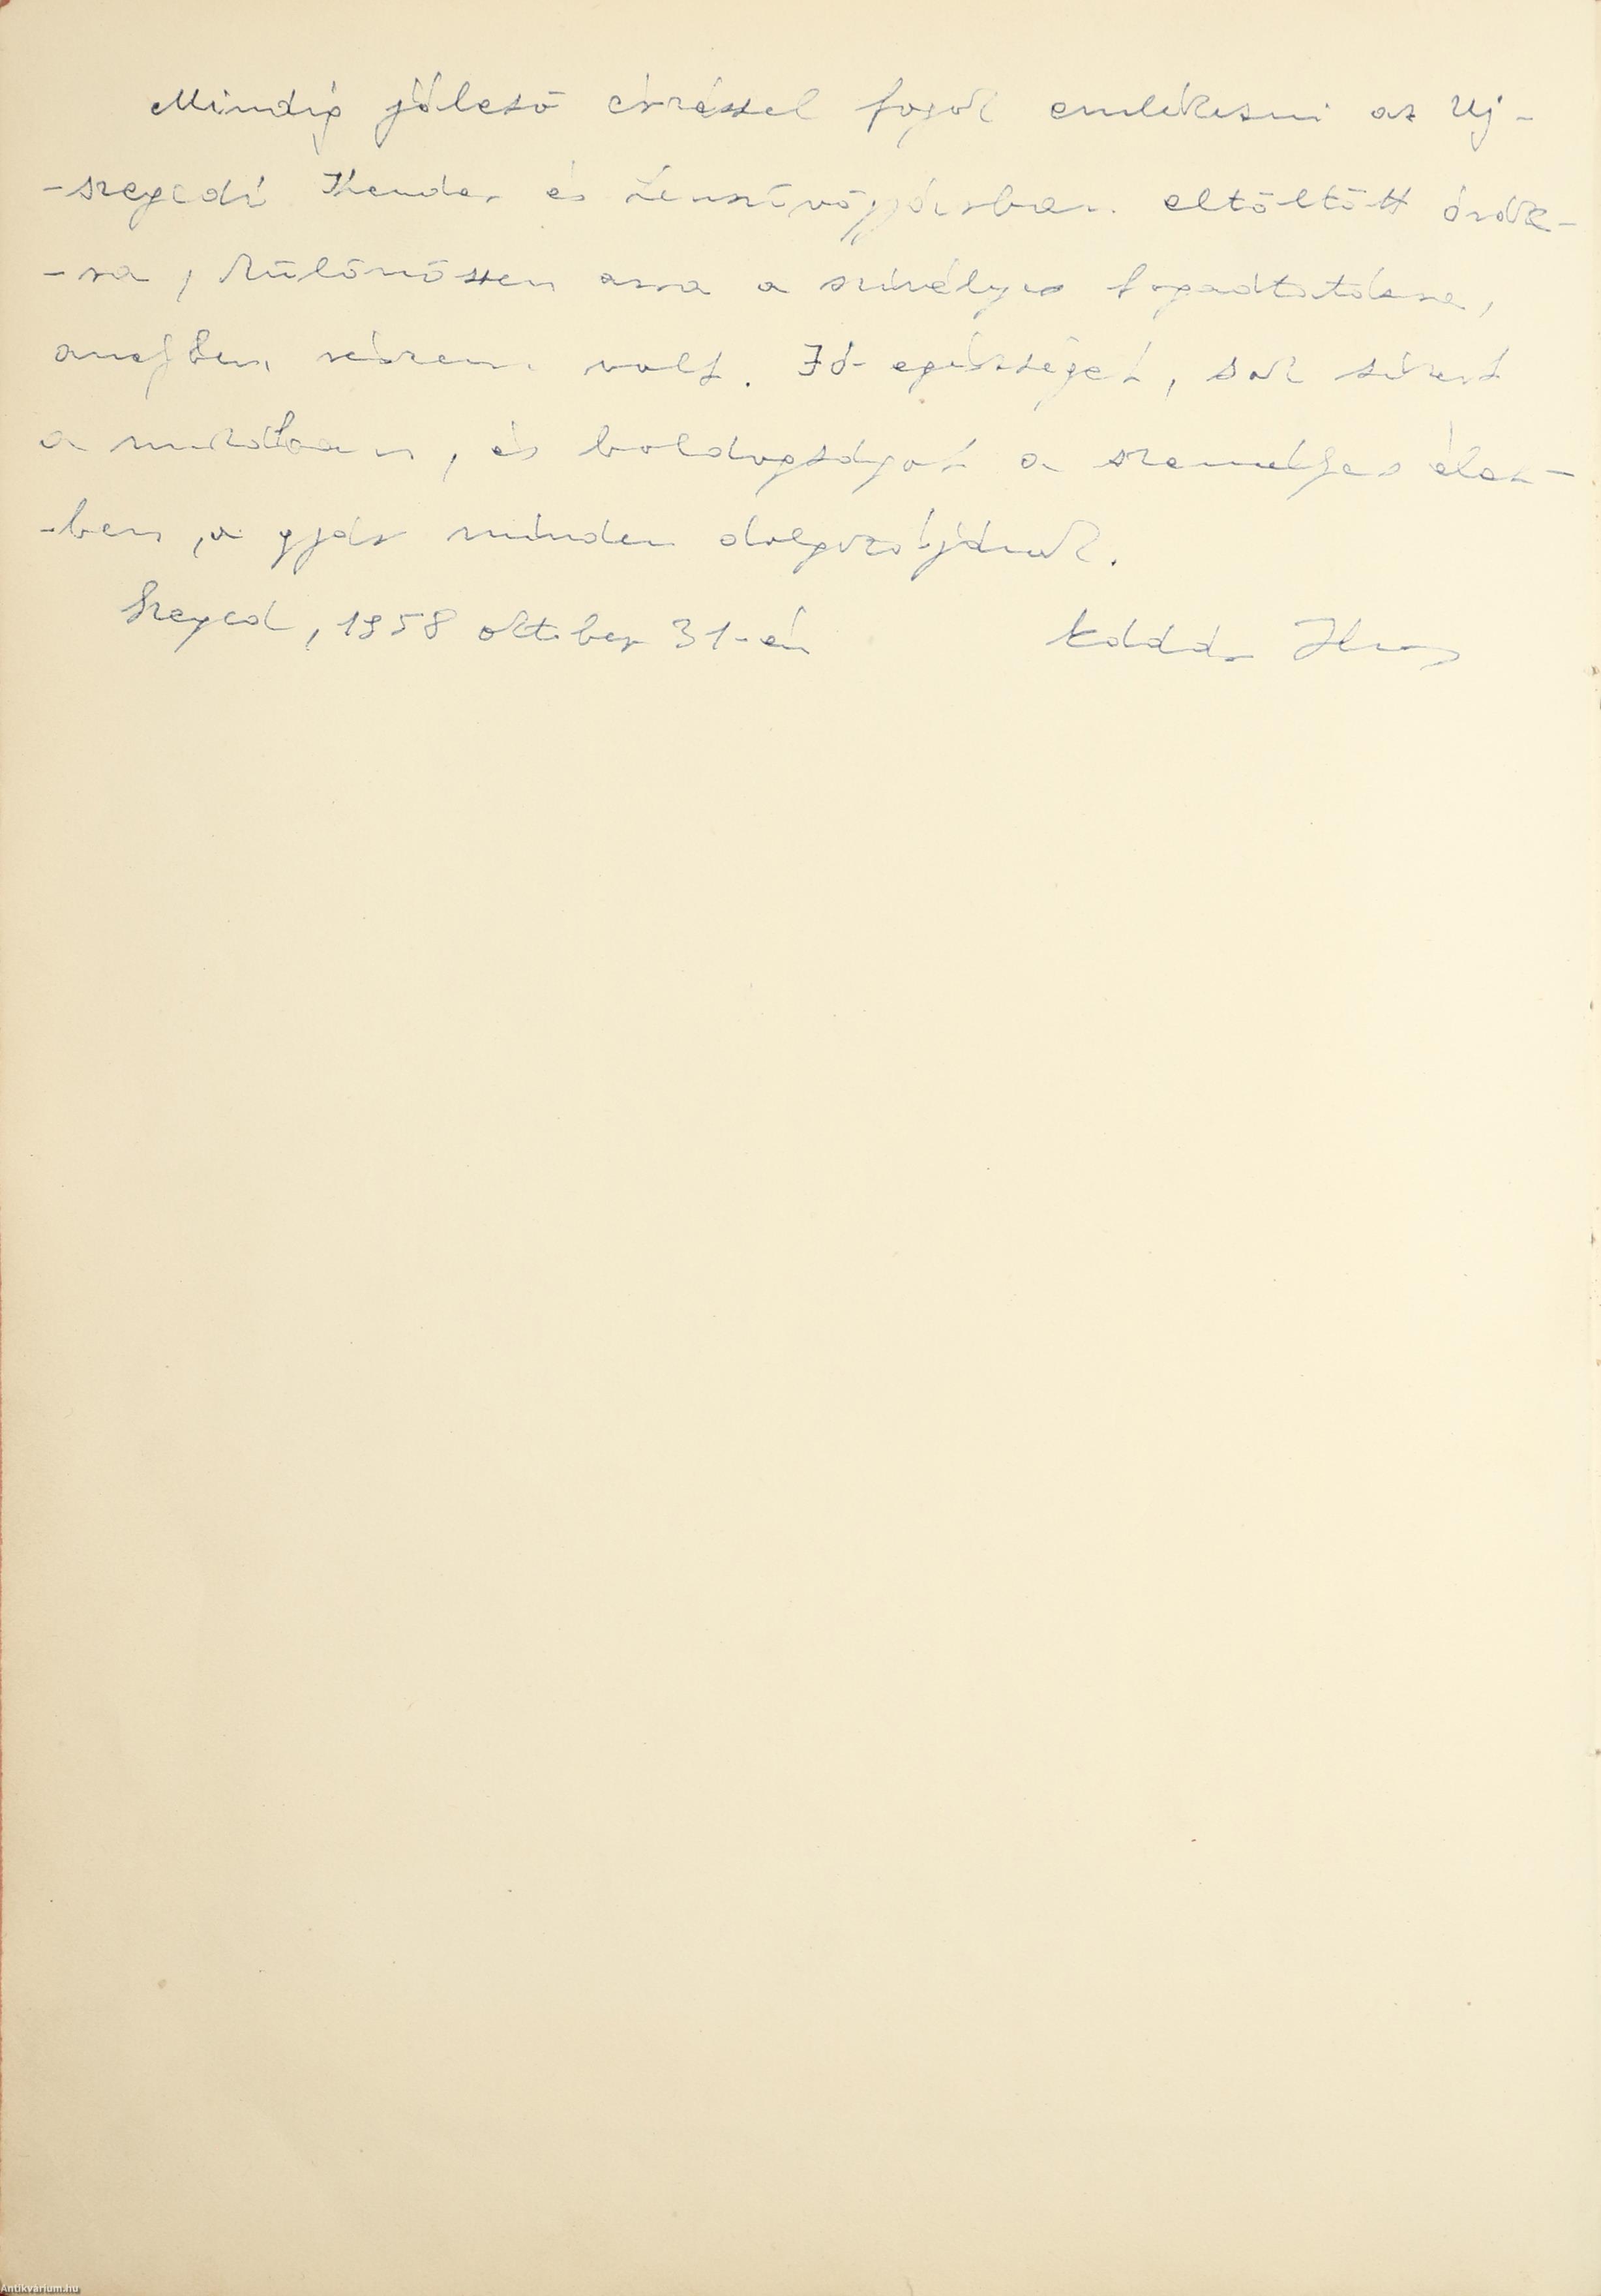 Mindig jóleső érzéssel fogok emlékezni az Uj-
-szegedi Kender és Lenszövőgyárban eltöltött órák-
-ra, különössen arra a szivélyes fogadtatásra,
amelyben részem volt. Jó egészséget, sok sikert
a munkában, és boldogságot a személyes élet-
-ben, a gyár minden dolgozójának.
Szeged, 1958 oktober 31-én Kádár János
Antikvarium.hu